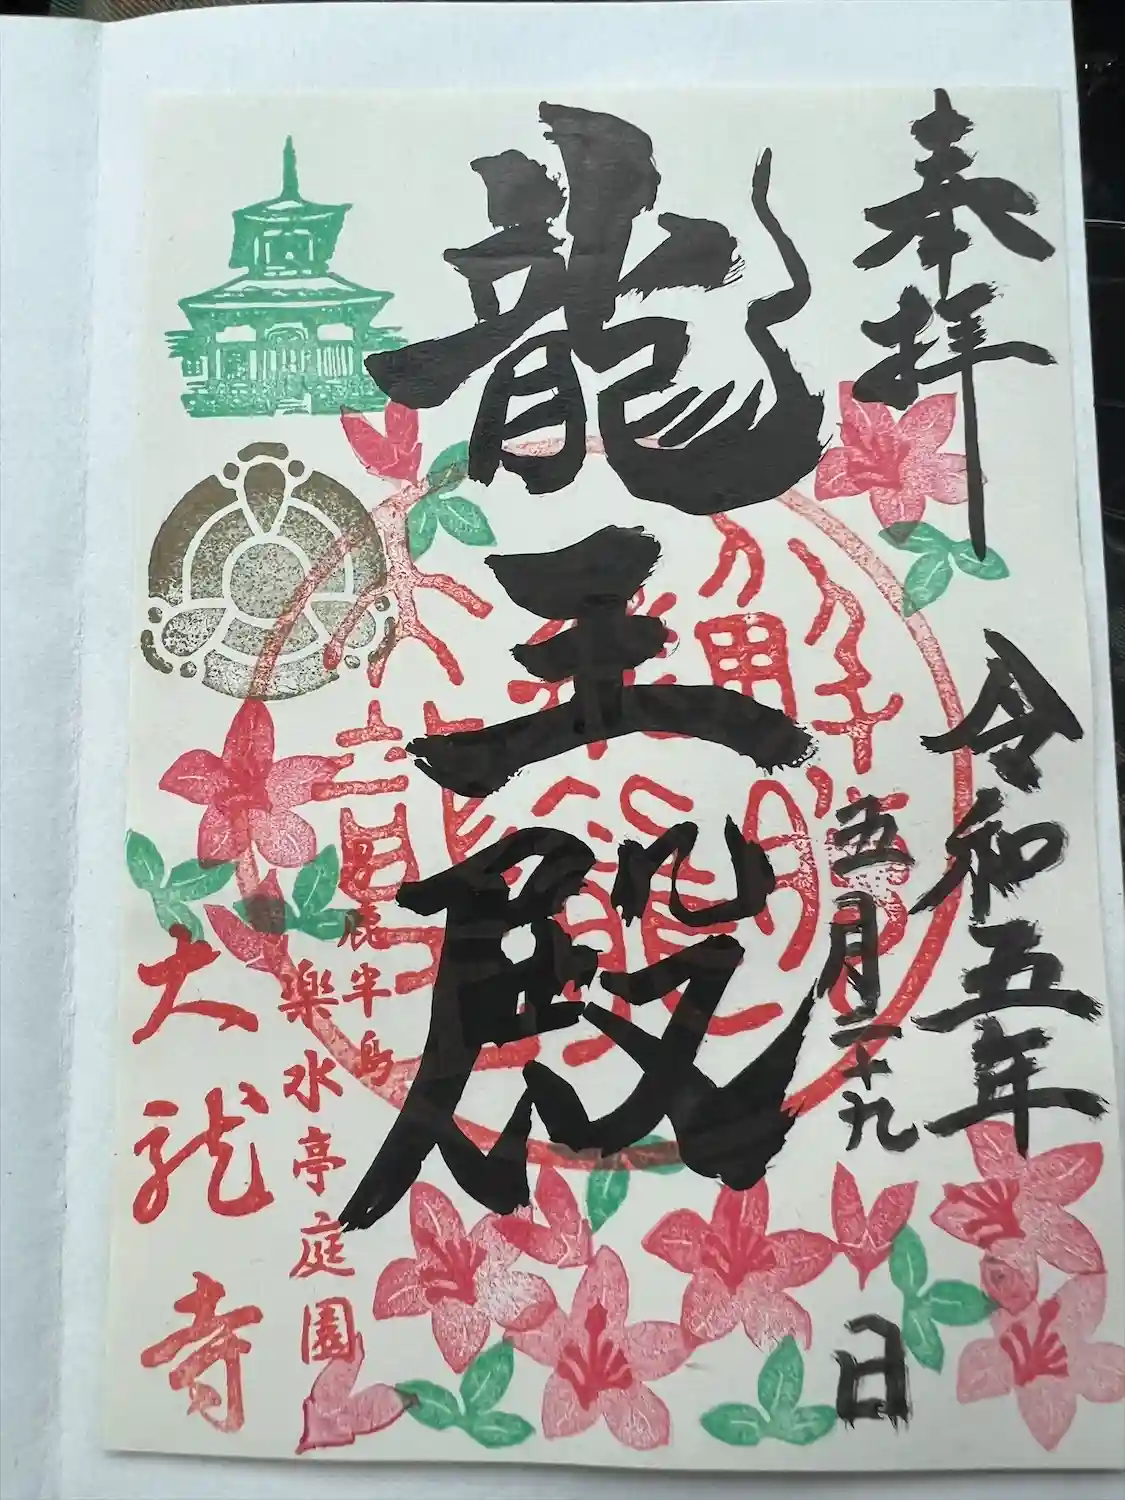 奉拝
令和五年
五月二十九日
龍王殿
男鹿半島
楽水亭庭園
大龍寺